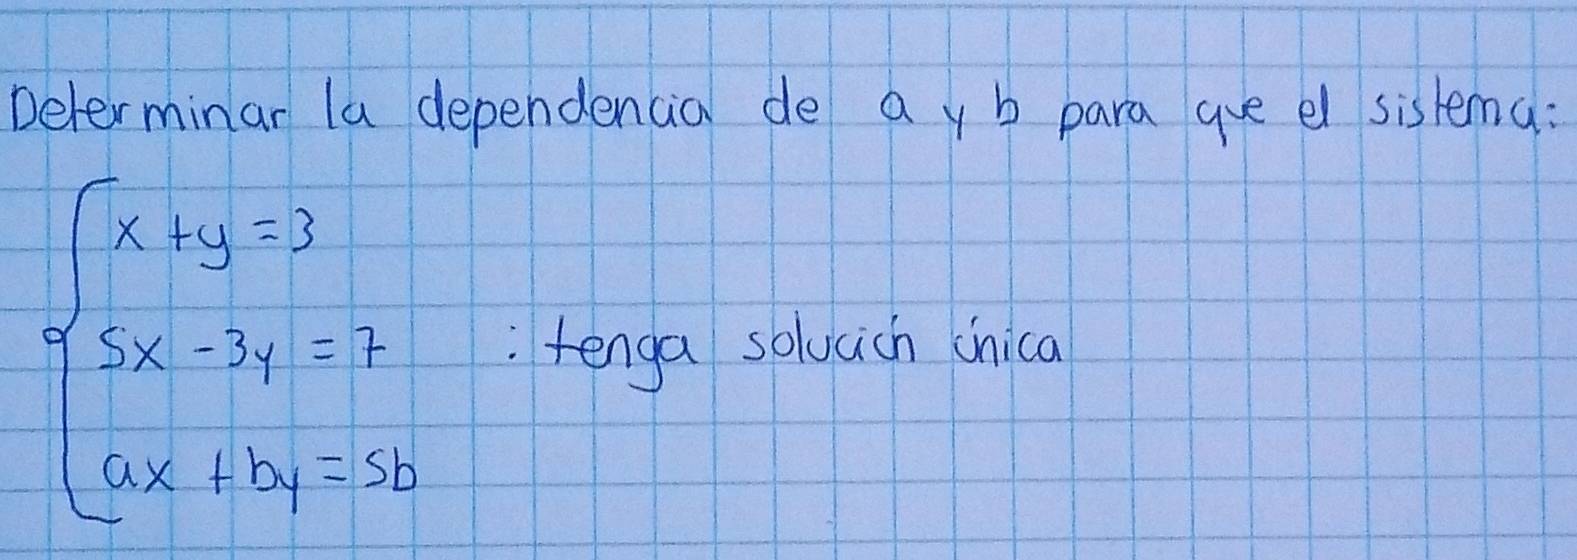 Determinar la dependencia de a y b para que el sistema:
x + y = 3
5x - 3y = 7 : tenga solución única
ax + by = 5b